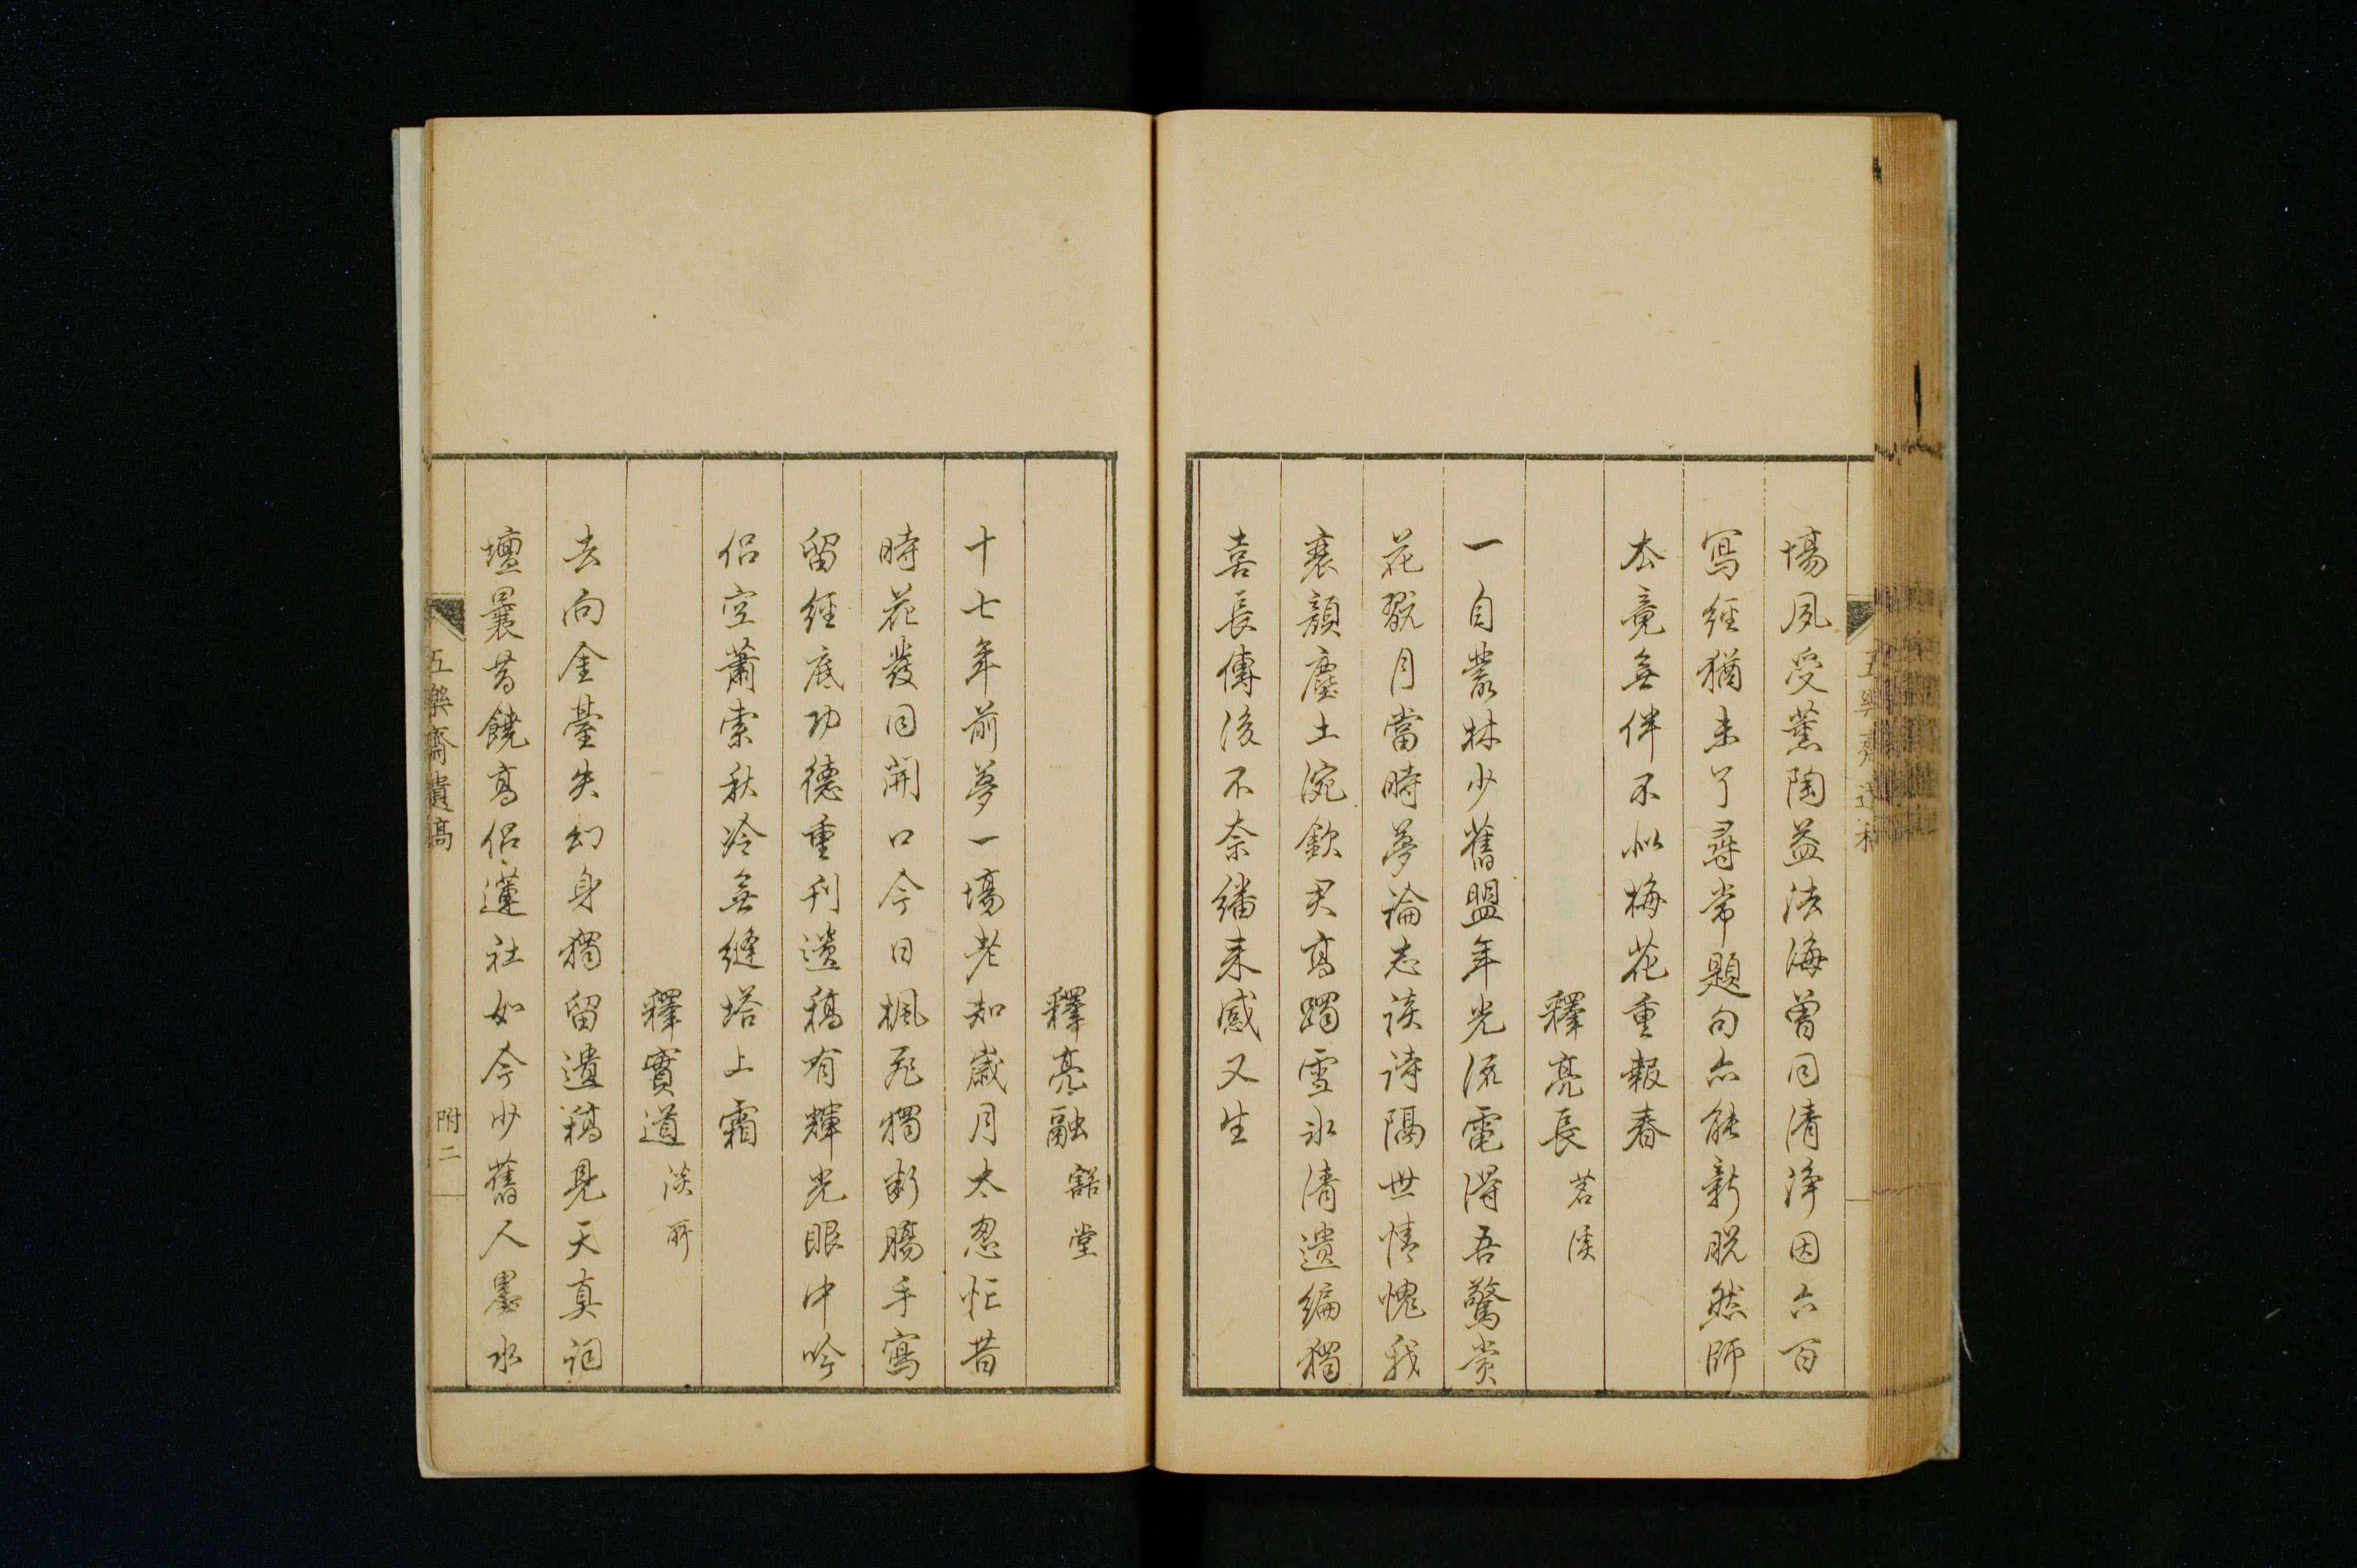 五樂齋遺稿
場夙受薰陶益法海曾同清淨因六百
寫經猶未了尋常題句亦能新脱然師
去竟無伴不似梅花重報春
釋亮長 茗溪
一自叢林少舊盟年光流電得吾驚賞
花翫月當時夢論志談詩隔世情愧我
衰顏塵土涴欽君高躅雪氷清遺編獨
喜長傳後不奈繙来感又生
釋亮融 豁堂
十七年前夢一場老知歳月太忽忙昔
時花發同開口今日楓飛獨断腸手寫
留經底功德重刊遺稿有輝光眼中吟
侶空蕭索秋冷無縫塔上霜
釋實道 淡所
去向金臺失幻身獨留遺稿見天真詞
壇曩昔饒高侶蓮社如今少舊人墨水
五樂齋遺稿
附二